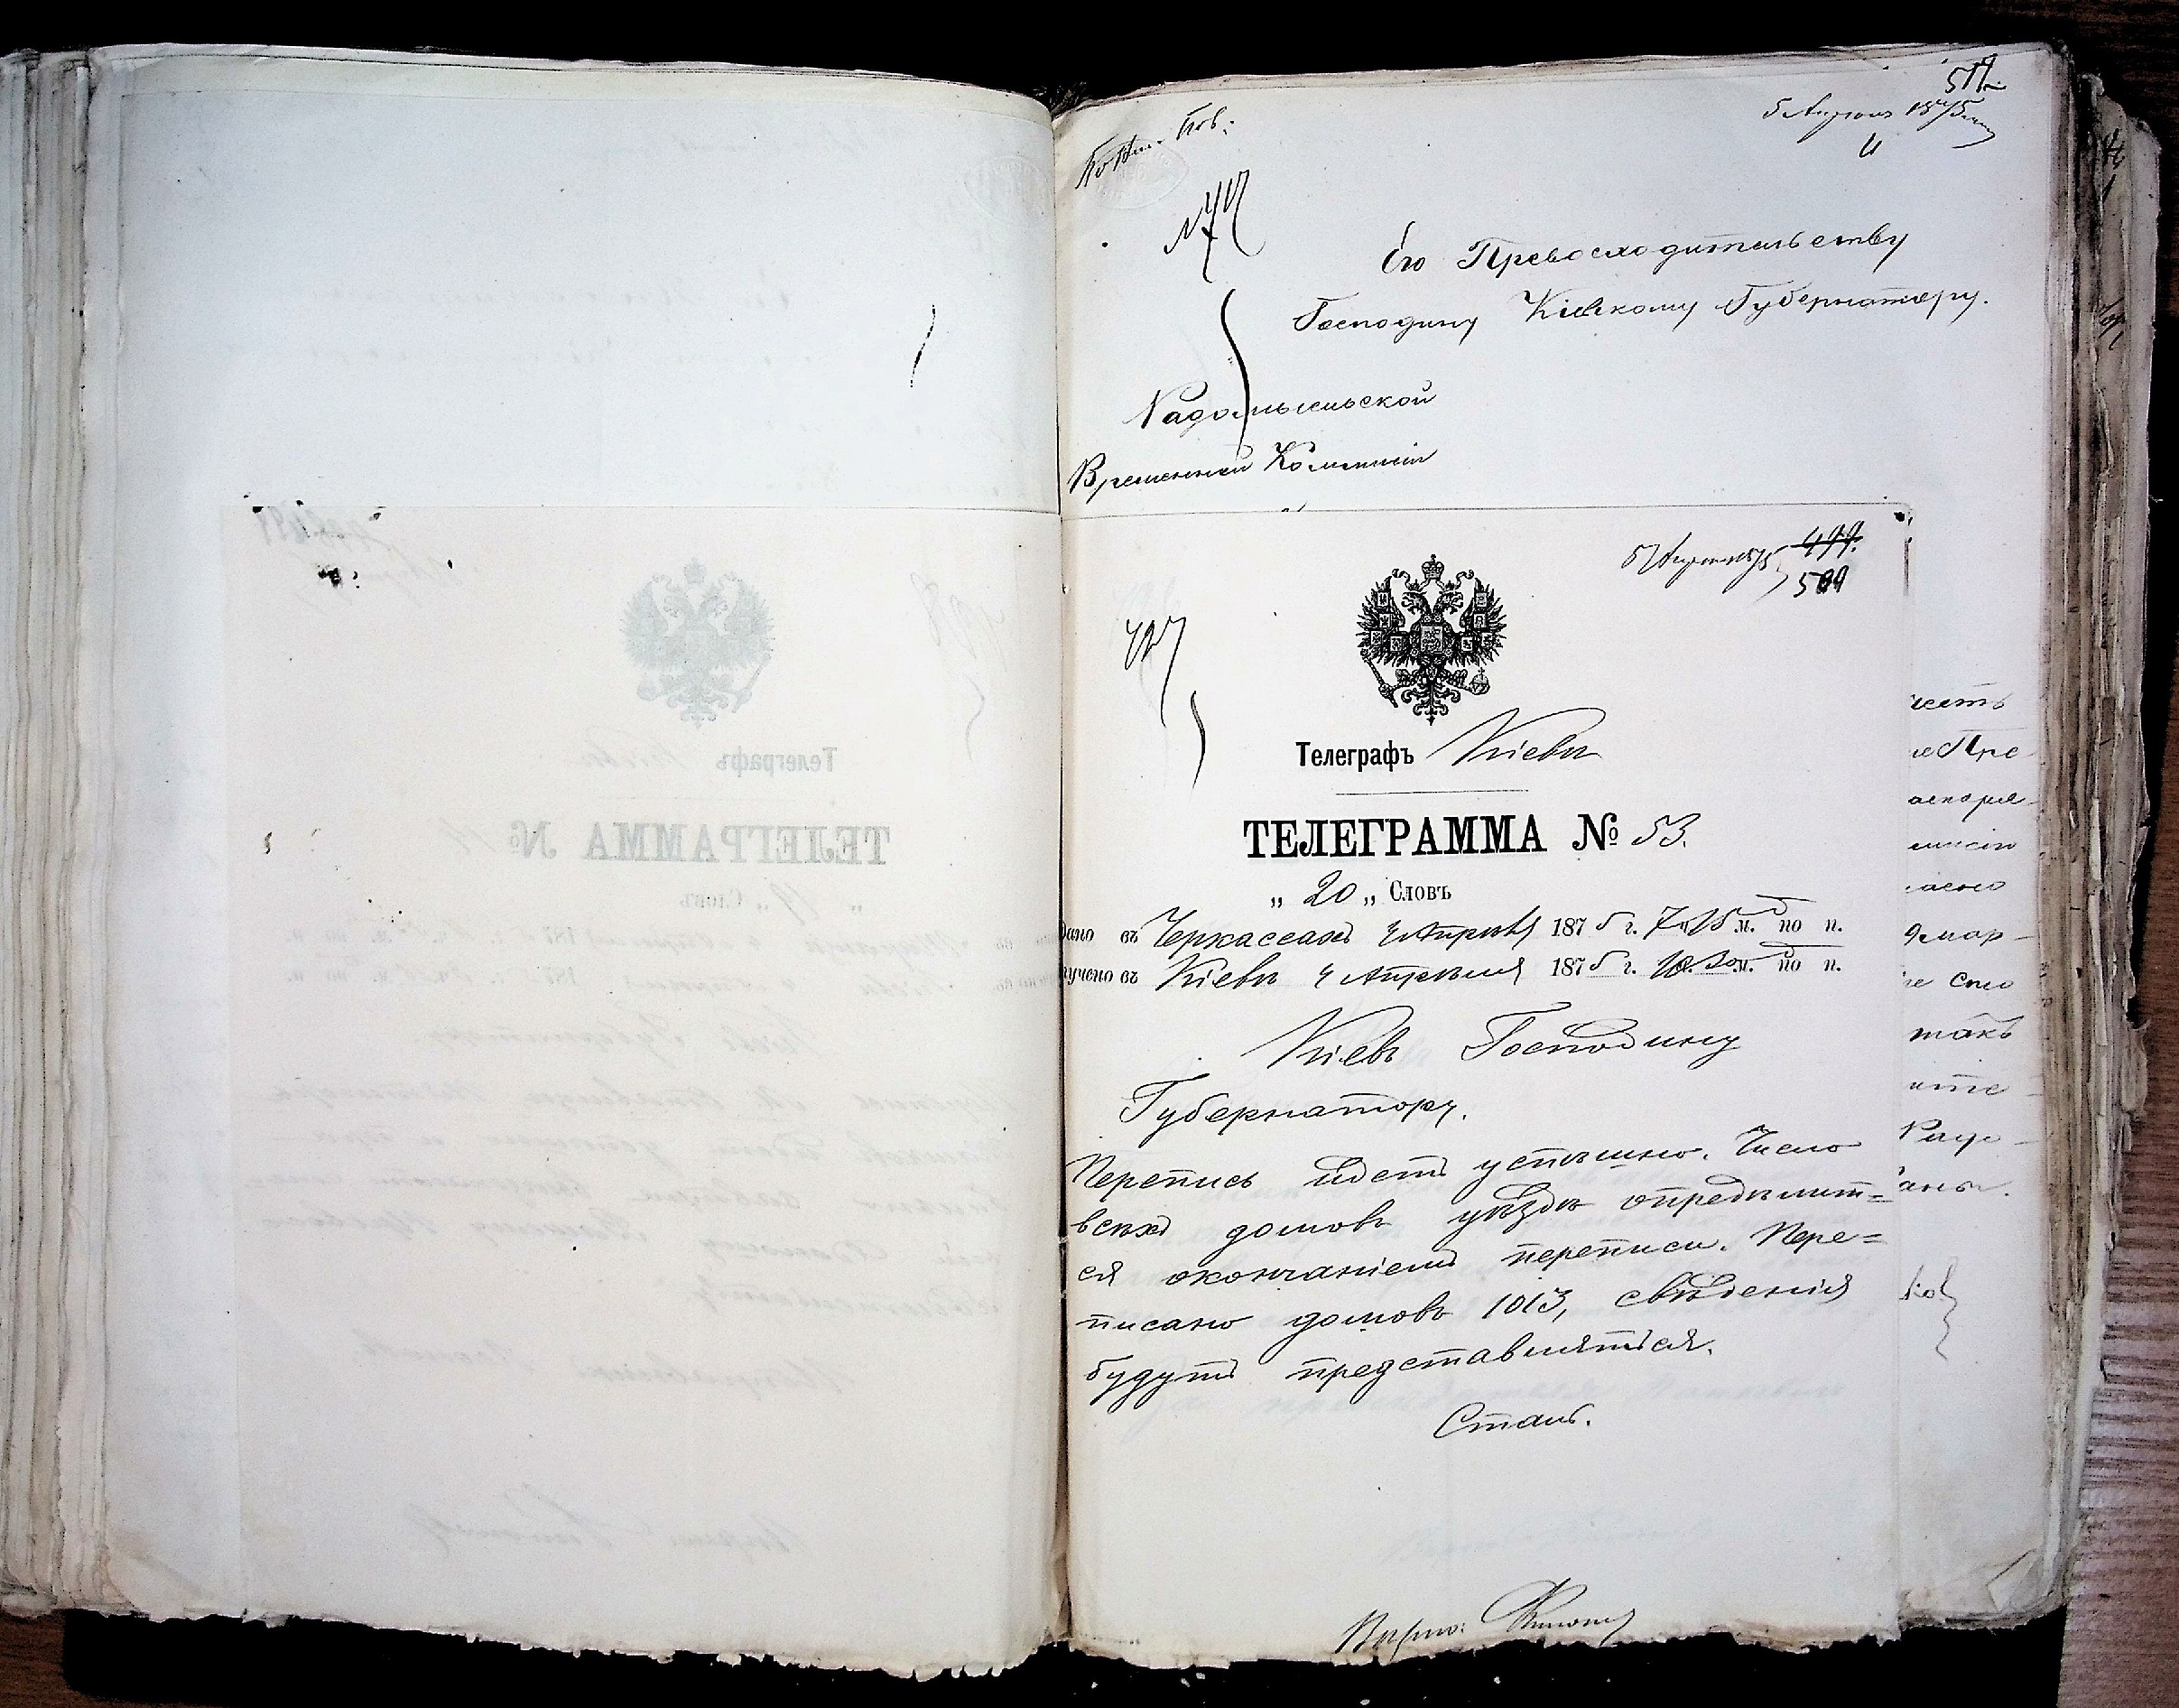 511
5 Апреля 1875
Его Превосходительству
Господину Кіевскому Губернатору.
Радомысльской
Временной Коммисіи
5 Апреля 1875 499.
509
427
Телеграфъ Кіевъ
ТЕЛЕГРАММА № 53.
„ 20 „ Словъ
дано въ Черкассахъ 4 Апрѣля 1875 г. 7 ч. 15 м. по п.
лучено въ Кіевѣ 4 Апрѣля 1875 г. 10 м. по п.
Кіевъ Господину
Губернатору.
Перепись идетъ успѣшно. Число
всѣхъ домовъ уѣзда опредѣлит=
ся окончаніемъ переписи. Пере=
писано домовъ 1013, свѣденія
будутъ представляться.
Сталь.
Вѣрно:
честь
Пре
такъ
Радо-